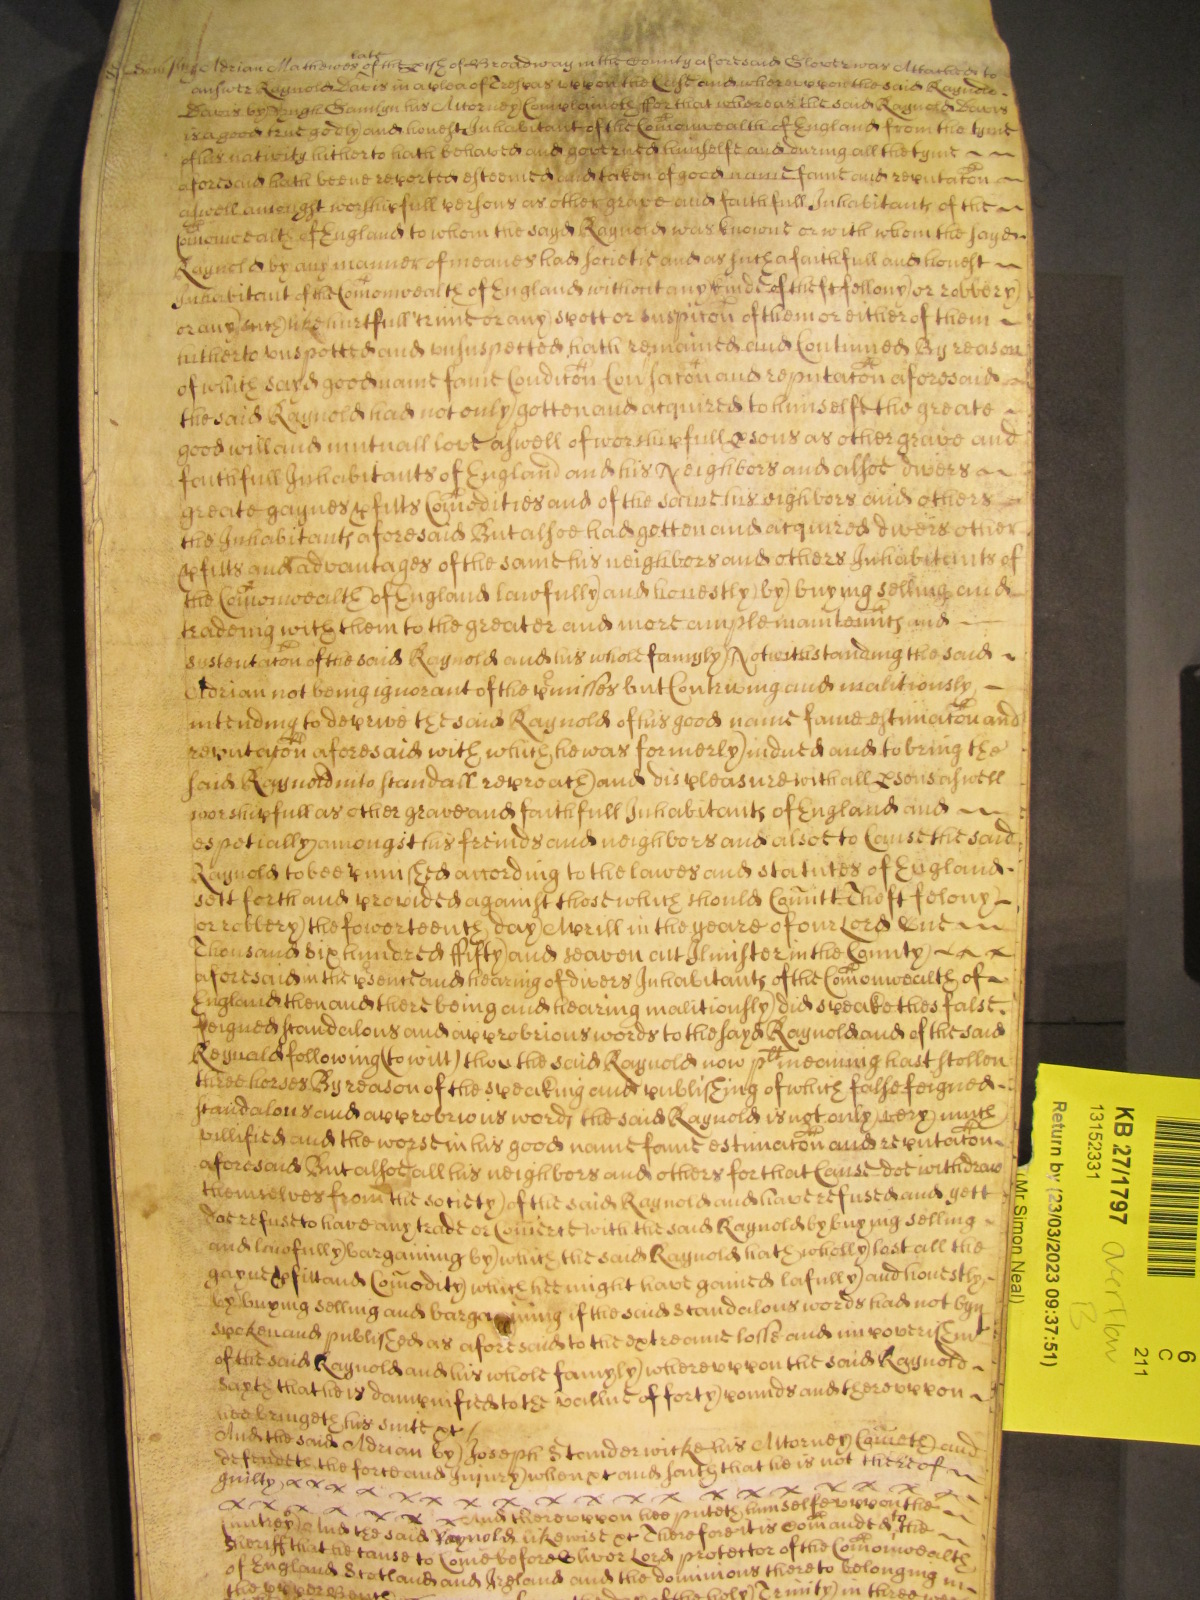 Adrian Mathewes late of the pish of Broadway in the County aforesaid Glover was Attached to
answer Raynold Davis in a plea of Trespas uppon the Case and whereuppon the said Raynold
Davis by Hugh Gamlyn his Attorney Complaineth ffor that whereas the said Raynold Davis
is a good true godly and honest Inhabitant of the Comonwealth of England from the tyme
of his nativity hitherto hath behaved and governed himselfe and during all the tyme
aforesaid hath beene reported esteemed and taken of good name fame and reputacon
aswell amongst worshipfull persons as other grave and faithfull Inhabitants of the
Comonwealth of England to whom the sayd Raynold was knowne or with whom the sayd
Raynold by any manner of meanes had societie and as such a faithfull and honest
Inhabitant of the Comonwealth of England without any kinde of theft fellony or robbery
or any such like hurtfull crime or any spott or suspicon of them or either of them
hitherto unspotted and unsuspected hath remained and Continued By reason
of which sayd good name fame Condicon Consacon and reputacon aforesaid
the said Raynold had not only gotten and acquired to himselfe the greate
good will and mutuall love aswell of worshipfull psons as other grave and
faithfull Inhabitants of England and his Neighbors and alsoe divers
greate gaynes pfitts Comodities and of the same his neighbors and others
the Inhabitants aforesaid But alsoe had gotten and acquired divers other
pfitts and advantages of the same his neighbors and others Inhabitants of
the Comonwealth of England lawfully and honestly by buying selling and
tradeing with them to the greater and more ample maintennts and
sustentacon of the said Raynold and his whole famyly Notwithstanding the said
Adrian not being ignorant of the pmisses but Contriving and malitiously
intending to deprive the said Raynold of his good name fame estimacon and
reputacon aforesaid with which he was formerly indued and to bring the
said Raynold into scandall reproach and displeasure with all psons aswell
worshipfull as other grave and faithfull Inhabitants of England and
espetially amongst his freinds and neighbors and alsoe to Cause the said
Raynold to bee punished according to the lawes and statutes of England
sett forth and provided against those which should Comitt Theft felony
or robbery the fowerteenth day Aprill in the yeare of our Lord One
Thousand six hundred ffifty and seaven att Ilminster in the County
aforesaid in the psence and hearing of divers Inhabitants of the Comonwealth of
England then and there being and hearing malitiously did speake thes false
feigned scandalous and approbrious words to the sayd Raynold and of the said
Reynald following (to witt) thou the said Raynold now plt meaning hast stollen
three horses By reason of the speaking and publishing of which false feigned
scandalous and approbrious words the said Raynold is not only very much
villified and the worse in his good name fame estimacon and reputacon
aforesaid But alsoe all his neighbors and others for that Cause doe withdraw
themselves from the society of the said Raynold and have refused and yett
doe refuse to have any trade or Comerce with the said Raynold by buying selling
and lawfully bargaining by which the said Raynold hath wholly lost all the
gayne pfitt and Comodity which hee might have gained lafully and honestly
by buying selling and bargaining if the said scandalous words had not byn
spoken and published as aforesaid to the extreame losse and impoverishmt
of the said Raynold and his whole famyly whereuppon the said Raynold
sayth that he is dampnified to the vallue of forty pounds and thereuppon
hee bringeth his suite &c
And the said Adrian by Joseph Standerwicke his Attorney Cometh and
defendeth the force and Injury when &c and saith that he is not thereof
guilty
And thereuppon hee puteth himselfe uppon the
Cuntrey And the said Raynold likewise &c Therefore it is comanded to the
Sheriff that he cause to Come before Oliver Lord protector of the Comonwealth
of England Scotland and Ireland and the dominions thereto belonging in
the upper Bench of the holy Trinity in three
KB 27/1797
13152331
Return by (23/03/2023 09:37:51)
(Mr Simon Neal)
6
C
211
overflow
B